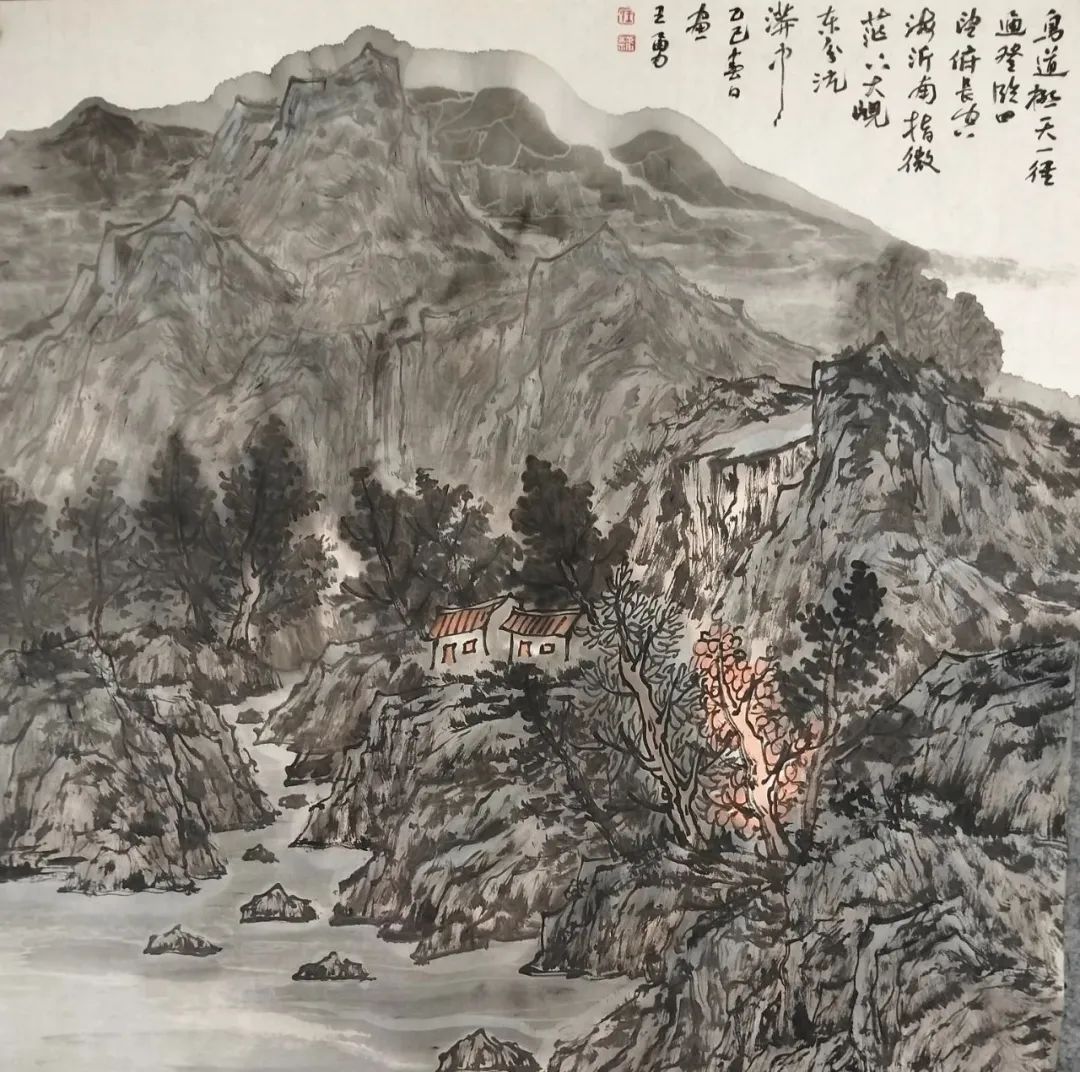 鸟道极天一径
通登临四
望俯长空
海沂南指微
茫大岘
东分流
漭中
乙巳春日
画
王勇